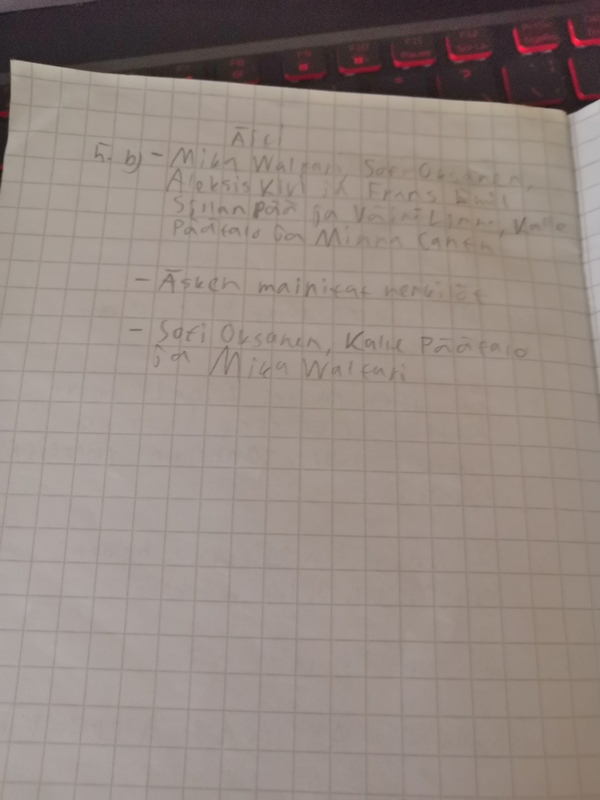 ÄIdI
5. b) - Mika Waltari, Sofi Oksanen,
Aleksis Kivi ja Frans Emil
Sillanpää ja Väinö Linna, Kalle
Päätalo ja Minna Canth
- Äsken mainitat henkilöt
- Sofi Oksanen, Kalle Päätalo
ja Mika Waltari